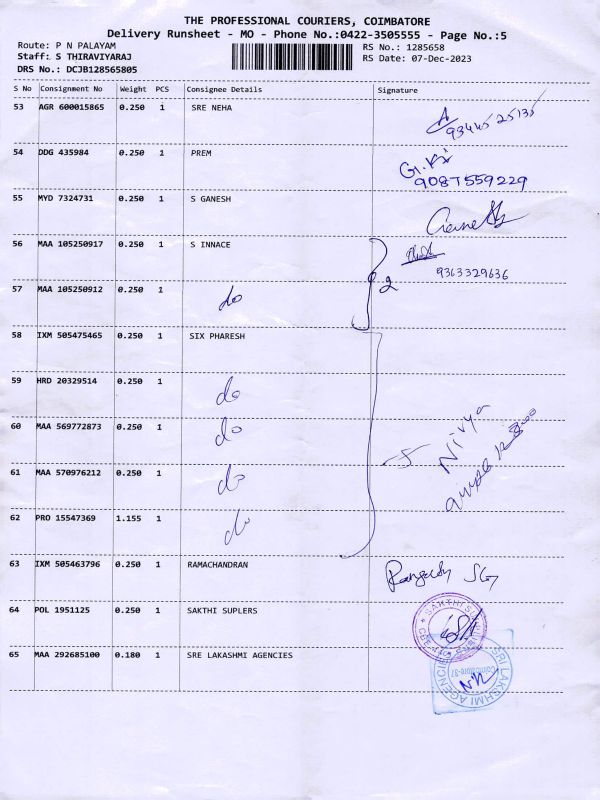 THE PROFESSIONAL COURIERS, COIMBATORE
Delivery Runsheet - MO - Phone No.:0422-3505555 - Page No.:5
Route: P N PALAYAM
RS No.: 1285658
Staff: S THIRAVIYARAJ
RS Date: 07-Dec-2023
DRS No.: DCJB128565805
S No Consignment No Weight PCS Consignee Details Signature
53 AGR 600015865 0.250 1 SRE NEHA
93445 25135
54 DDG 435984 0.250 1 PREM
9087559229
55 MYD 7324731 0.250 1 S GANESH
56 MAA 105250917 0.250 1 S INNACE
9363329636
57 MAA 105250912 0.250 1 do 2
58 IXM 505475465 0.250 1 SIX PHARESH
59 HRD 20329514 0.250 1 do
60 MAA 569772873 0.250 1 do
Nivya
61 MAA 570976212 0.250 1 do
62 PRO 15547369 1.155 1 do
63 IXM 505463796 0.250 1 RAMACHANDRAN
64 POL 1951125 0.250 1 SAKTHI SUPLERS
65 MAA 292685100 0.180 1 SRE LAKASHMI AGENCIES
SRI LAKSHMI AGENCIES
Coimbatore-37